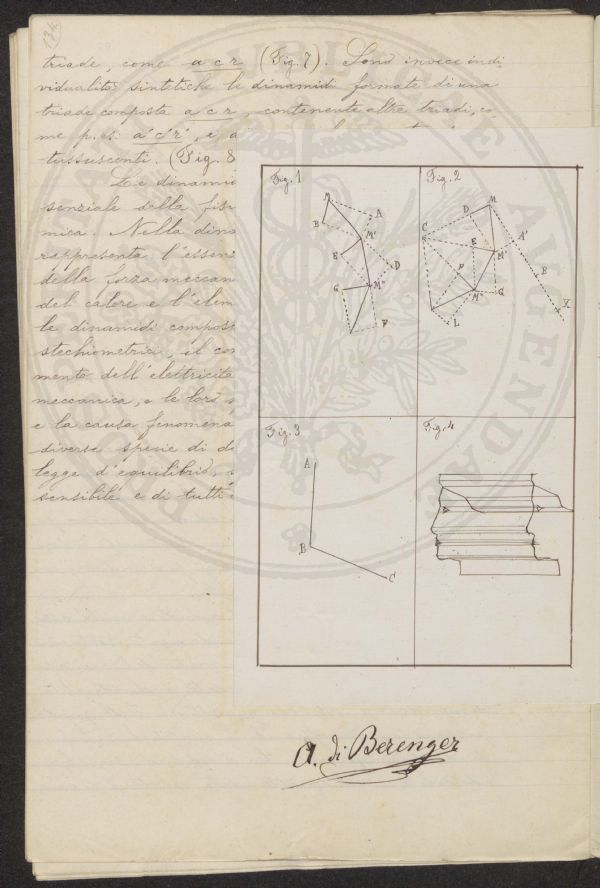 134
triade, come a c r (Fig. 7). Sono invece indi
vidualità sintetiche le dinamidi formate di una
triade composta a c r, contenente altre triadi, co
me p. es. a' c' r', e
tussuscenti. (Fig. 8
Le dinami
senziale della fis
mica. Nella dina
rappresenta l'essen
della forza meccan
del calore e l'elem
le dinamidi compost
stechiometria, il co
mento dell'elettricità
meccanica, e le loro
e la causa fenomena
diverse specie di d
legge d'equilibrio,
sensibile e di tutti
Fig. 1
M
A
B
M'
E
D
G
M"
F
Fig. 2
M
D
C
A'
E
M'
B
F
M"
G
X
L
Fig. 3
A
B
C
Fig. 4
A. di Berenger
PUBLICAE
AUGENDAE